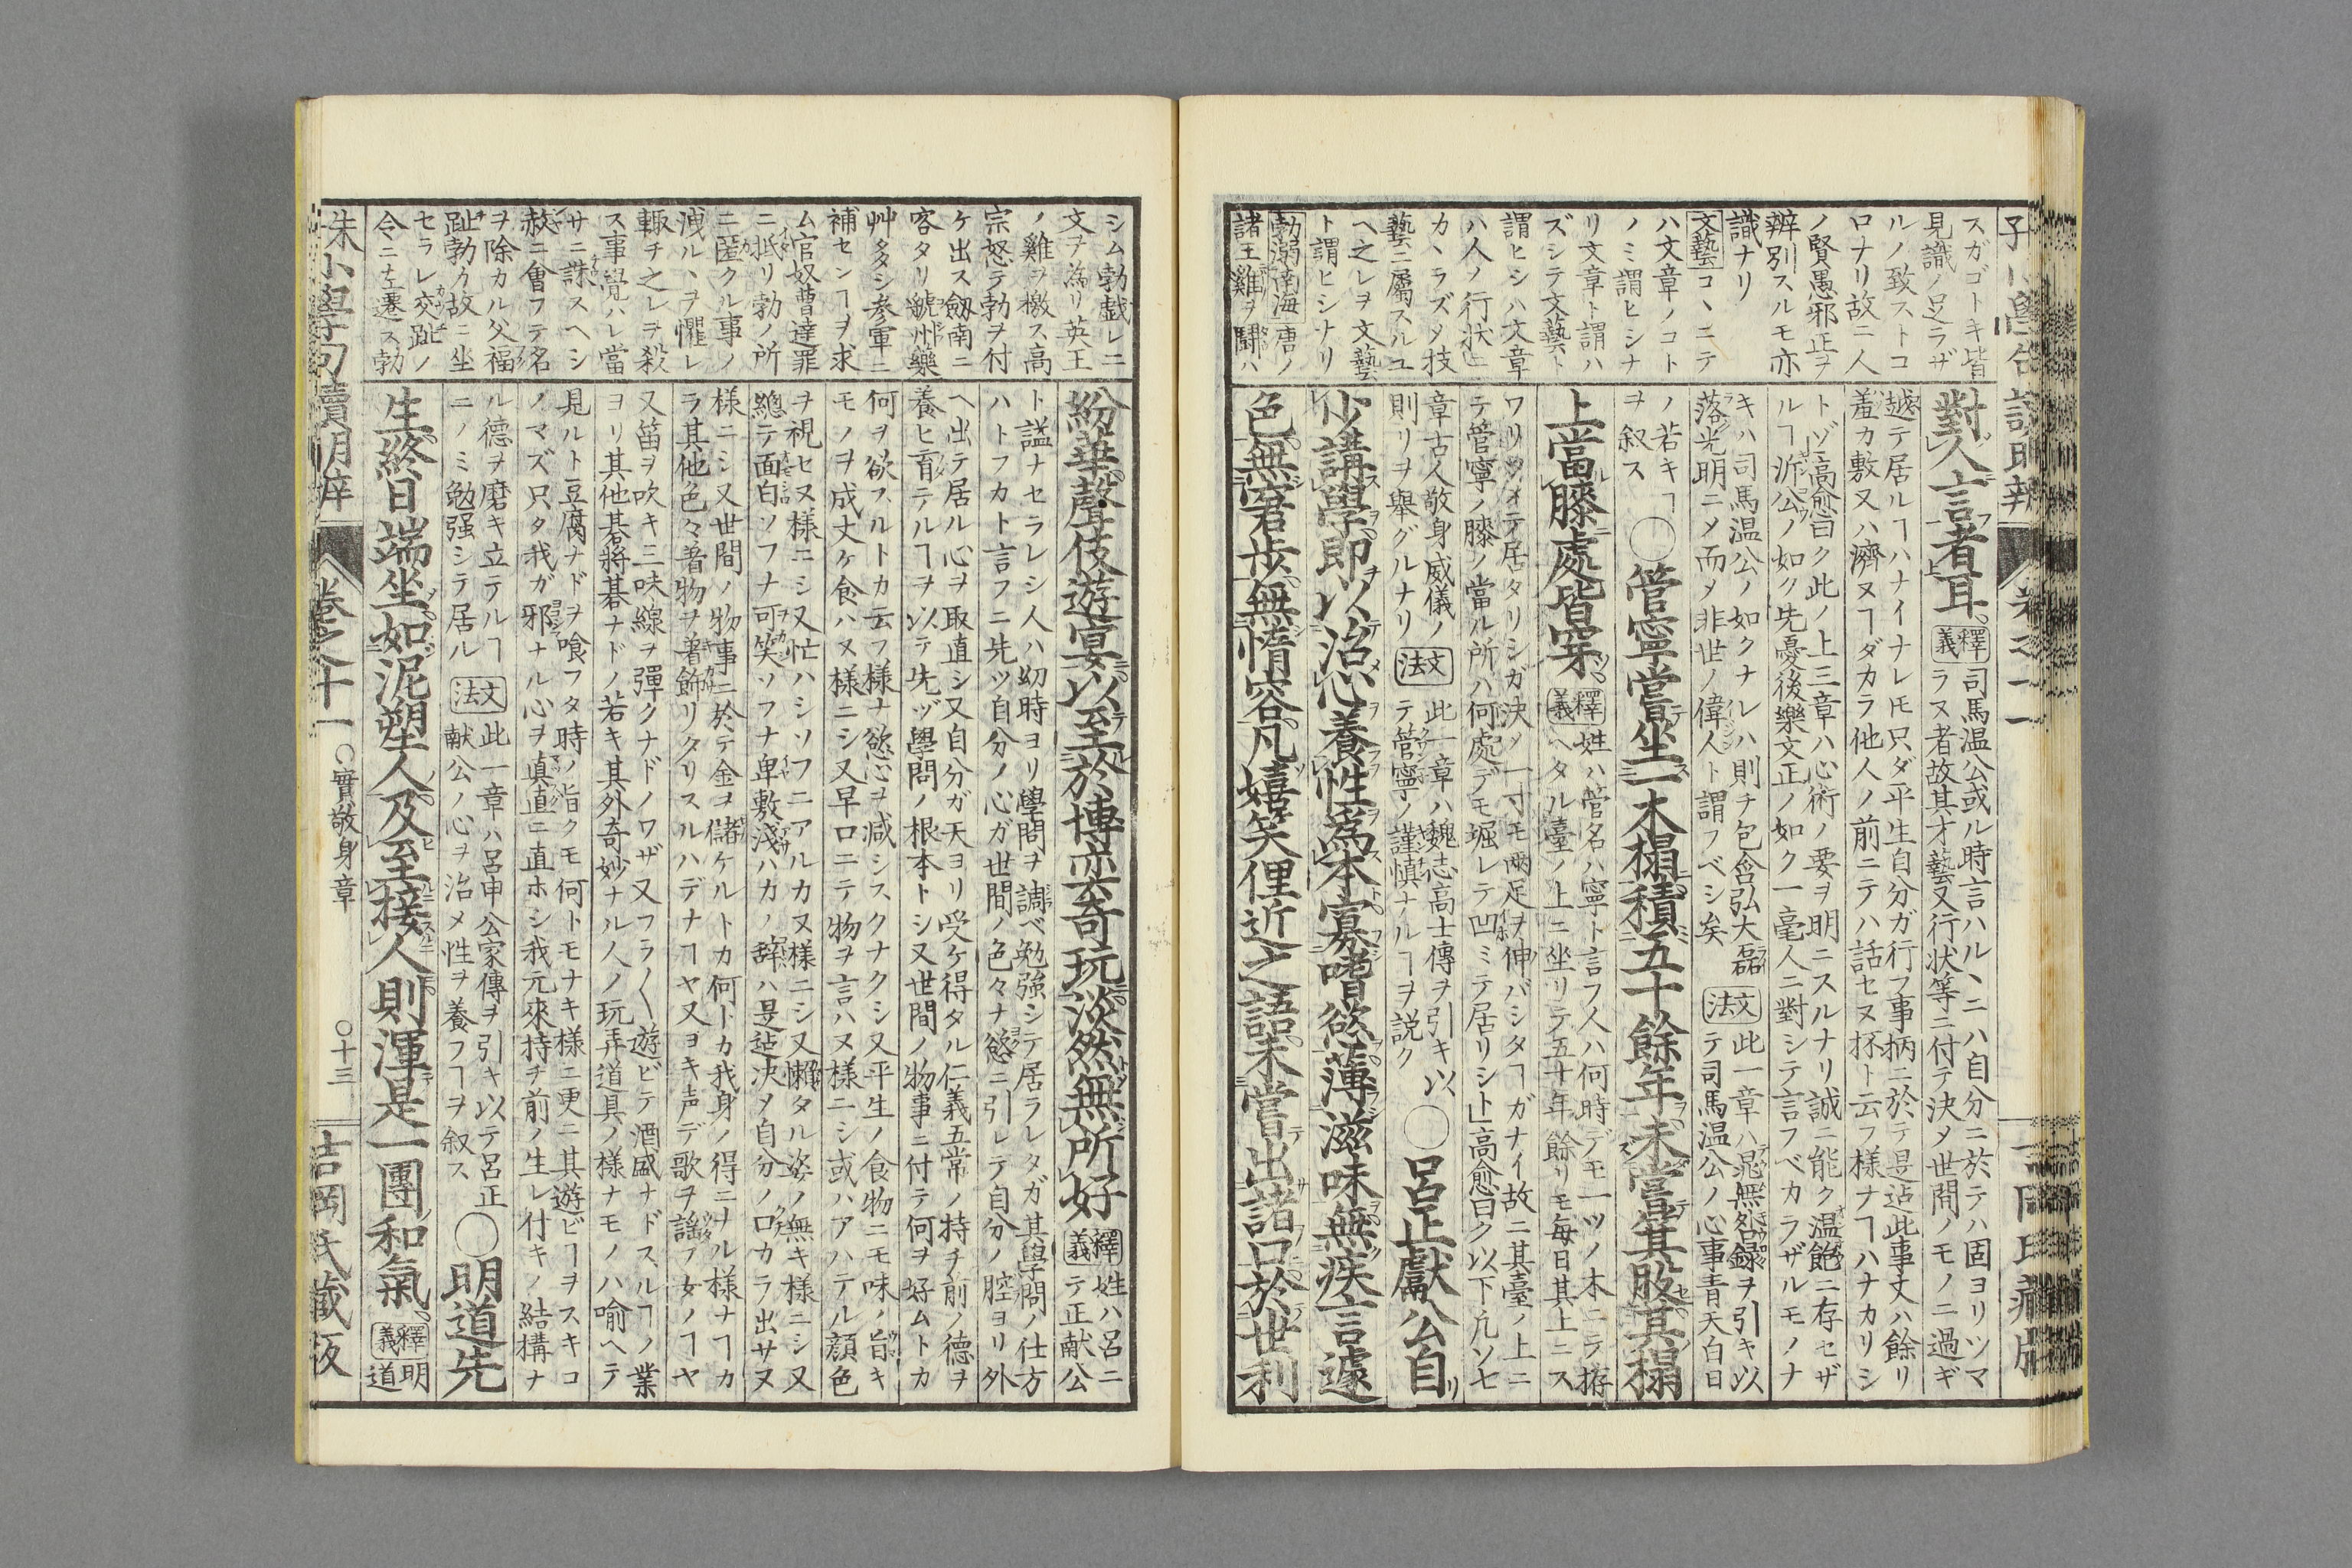 スガゴトキ皆
見識ノ足ラザ
ルノ致ストコ
ロナリ故ニ人
ノ賢愚邪正ヲ
辨別スルモ亦
識ナリ
文藝コヽニテ
ハ文章ノコト
ノミ謂ヒシナ
リ文章ト謂ハ
ズシテ文藝ト
謂ヒシハ文章
ハ人ノ行状ニ
カヽラズタ技
藝ニ屬スルユ
ヘ之レヲ文藝
ト謂ヒシナリ
勃溺南海唐ノ
諸王雞ヲ鬪ハ
對人言者耳
釋義司馬温公或ル時言ハルヽニハ自分ニ於テハ固ヨリツマ
ラヌ者故其才藝又行状等ニ付テ決メ世間ノモノニ過ギ
越テ居ルヿハナイナレモ只ダ平生自分ガ行フ事柄ニ於テ是迠此事丈ハ餘リ
羞カ敷又ハ濟ヌヿダカラ他人ノ前ニテハ話セヌ抔ト云フ様ナヿハナカリシ
トゾ高愈曰ク此ノ上三章ハ心術ノ要ヲ明ニスルナリ誠ニ能ク温飽ニ存セザ
ルヿ沂公ノ如ク先憂後樂文正ノ如ク一毫人ニ對シテ言フベカラザルモノナ
キハ司馬温公ノ如クナレハ則チ包含弘大磊
落光明ニメ而メ非世ノ偉人ト謂フベシ矣
文法此一章ハ晁無咎録ヲ引キ以
テ司馬温公ノ心事青天白日
ノ若キヿ
ヲ叙ス
○管寧嘗坐一木榻積五十餘年未嘗箕股其榻
上當膝處皆穿
釋義姓ハ管名ハ寧ト言フ人ハ何時デモ一ツノ木ニラ拵
ヘタル臺ノ上ニ坐リテ五十年餘リモ毎日其上ニス
ワリツメテ居タリシガ決メ一寸モ兩足ヲ伸バシタヿガナイ故ニ其臺ノ上ニ
テ管寧ノ膝ノ當ル所ハ何處デモ堀レテ凹ミテ居リシト高愈曰ク以下凡ソ七
章古人敬身威儀ノ
則リヲ舉グルナリ
文法此一章ハ魏志高士傳ヲ引キ以
テ管寧ノ謹慎ナルヿヲ説ク
○呂正獻公自
少講學即以治心養性爲本寡嗜慾薄滋味無疾言遽
色無窘歩無惰容凡嬉笑俚近之語未嘗出諸口於世利
シム勃戯レニ
文ヲ為リ英王
ノ雞ヲ檄ス高
宗怒テ勃ヲ付
ケ出ス劔南ニ
客タリ虢州藥
艸多シ参軍ニ
補センヿヲ求
ム官奴曹達罪
ニ抵リ勃ノ所
ニ匿クル事ノ
洩ルヽヲ懼レ
輙チ之レヲ殺
ス事覺ハレ當
サニ誅スヘシ
赦ニ會フテ名
ヲ除カル父福
趾勃ク故ニ坐
セラレ交趾ノ
令ニ左遷ス勃
紛華聲伎遊宴以至於博奕奇玩淡然無所好
釋義姓ハ呂ニ
テ正献公
ト謚ナセラレシ人ハ幼時ヨリ學問ヲ調ベ勉強シテ居ラレタガ其學問ノ仕方
ハトフカト言フニ先ツ自分ノ心ガ世間ノ色々ナ慾ニ引レテ自分ノ腔ヨリ外
ヘ出テ居ル心ヲ取直シ又自分ガ天ヨリ受ケ得タル仁義五常ノ持チ前ノ德ヲ
養ヒ育テルヿヲ以テ先ヅ學問ノ根本トシ又世間ノ物事ニ付テ何ヲ好ムトカ
何ヲ欲スルトカ云フ様ナ慾心ヲ減シスクナクシ又平生ノ食物ニモ味ノ旨キ
モノヲ成丈ケ食ハヌ様ニシ又早口ニテ物ヲ言ハヌ様ニシ或ハアハテル顔色
ヲ視セヌ様ニシ又忙ハシソフニアルカヌ様ニシ又懶タル姿ノ無キ様ニシ又
總テ面白ソフナ可笑ソフナ卑敷淺ハカノ辭ハ是迠決メ自分ノ口カラ出サヌ
様ニシ又世間ノ物事ニ於テ金ヲ儲ケルトカ何トカ我身ノ得ニナル様ナヿカ
ラ其他色々着物ヲ着飾リタリスルハデナヿヤ又ヨキ声デ歌ヲ謡フ女ノヿヤ
又笛ヲ吹キ三味線ヲ彈クナドノワザ又フラ〱遊ビテ酒盛ナドスルヿノ業
ヨリ其他碁將棊ナドノ若キ其外奇妙ナル人ノ玩弄道具ノ様ナモノハ喻ヘテ
見ルト豆腐ナドヲ喰フタ時ノ旨クモ何トモナキ様ニ更ニ其遊ビヿヲスキコ
ノマズ只タ我ガ邪ナル心ヲ眞直ニ直ホシ我元來持チ前ノ生レ付キノ結構ナ
ル德ヲ磨キ立テルヿ
ニノミ勉强シテ居ル
文法此一章ハ呂申公家傳ヲ引キ以テ呂正
献公ノ心ヲ治メ性ヲ養フヿヲ叙ス
○明道先
生終日端坐如泥塑人及至接人則渾是一團和氣
釋義明
道
朱小學句讀明辨 卷之十一 ○實敬身章 ○十三 吉岡氏藏版